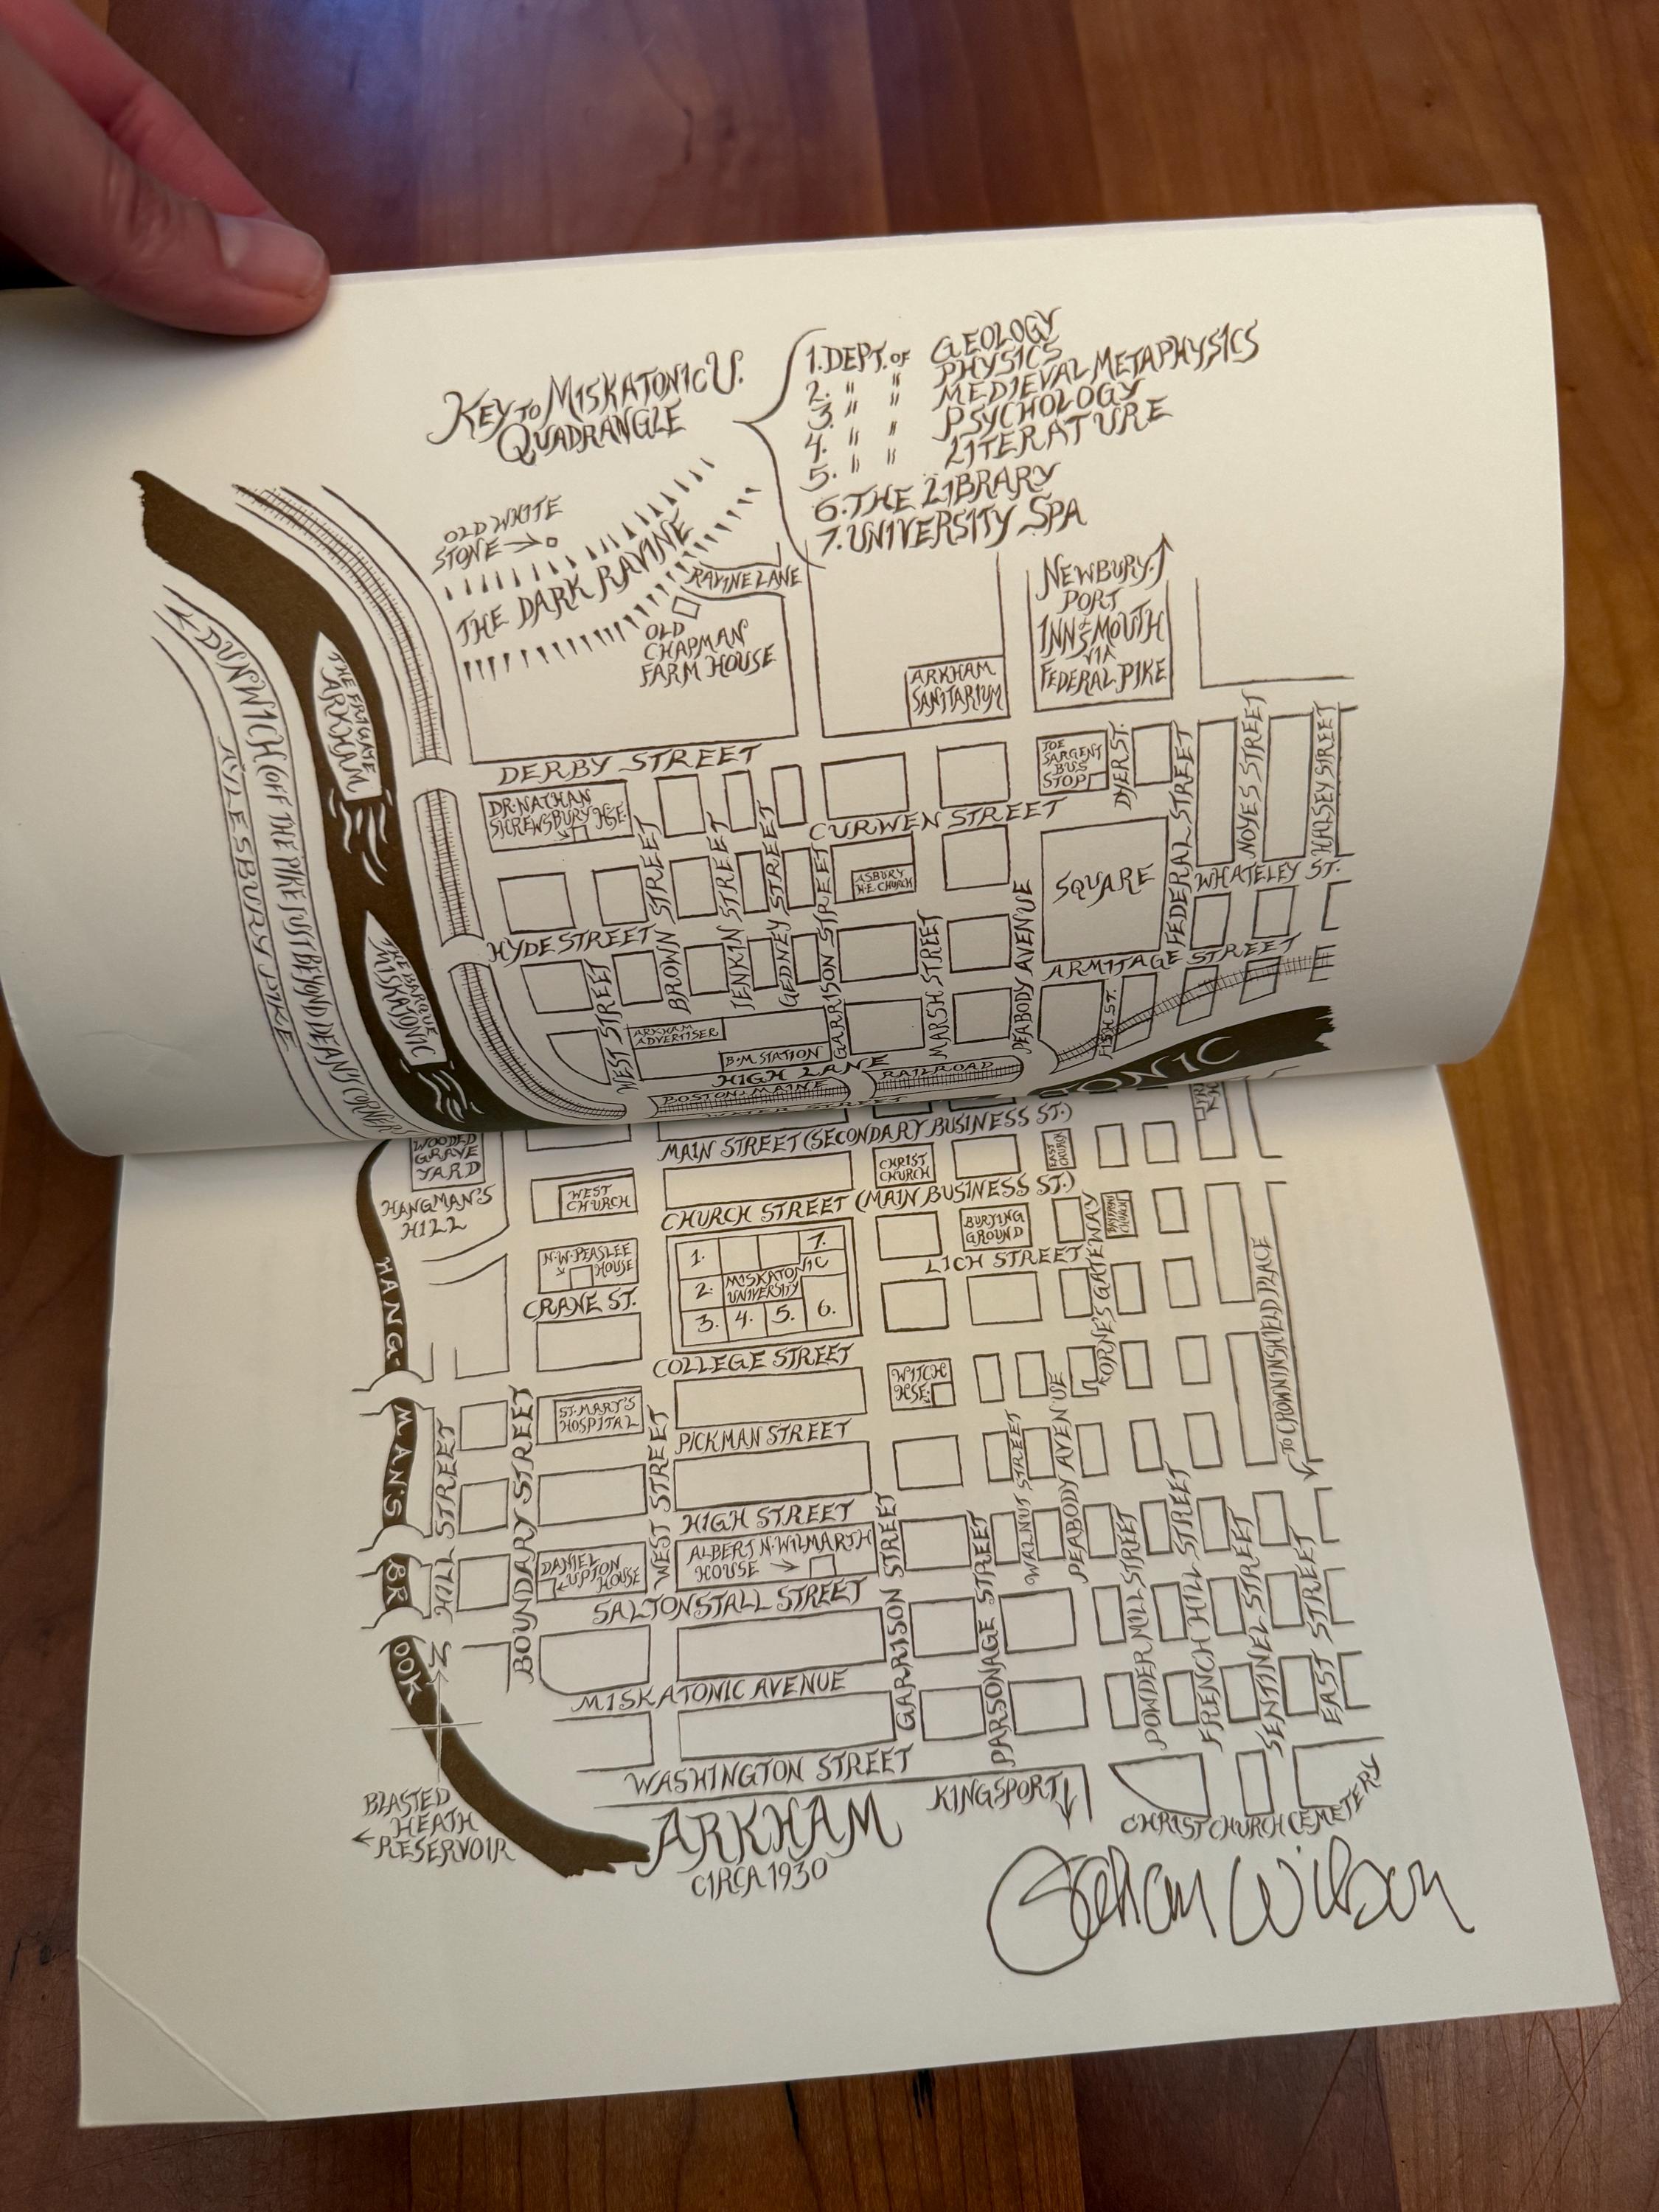 KEY TO MISKATONIC U.
QUADRANGLE
1. DEPT. OF GEOLOGY
2. " " PHYSICS
3. " " MEDIEVAL METAPHYSICS
4. " " PSYCHOLOGY
5. " " LITERATURE
6. THE LIBRARY
7. UNIVERSITY SPA
OLD WHITE
STONE
THE DARK RAVINE
RAVINE LANE
OLD
CHAPMAN
FARM HOUSE
NEWBURY-
PORT
INNSMOUTH
VIA
FEDERAL PIKE
ARKHAM
SANITARIUM
DUNWICH (OFF THE PIKE JUST BEYOND DEAN'S CORNER)
AYLESBURY PIKE
THE FRIGATE
ARKHAM
THE BARQUE
MISKATONIC
DERBY STREET
DR. NATHAN
SHREWSBURY HSE.
JOE
SARGENT
BUS
STOP
DYER ST.
CURWEN STREET
ASBURY
M.E. CHURCH
SQUARE
FEDERAL STREET
NOYES STREET
HALSEY STREET
WHATELEY ST.
HYDE STREET
WEST STREET
BROWN STREET
JENKIN STREET
GEDNEY STREET
GARRISON STREET
MARSH STREET
PEABODY AVENUE
ARMITAGE STREET
FISH ST.
ARKHAM
ADVERTISER
B-M STATION
HIGH LANE
BOSTON-MAINE RAILROAD
WATER STREET
TONIC
MAIN STREET (SECONDARY BUSINESS ST.)
WOODED
GRAVE
YARD
HANGMAN'S
HILL
WEST
CHURCH
CHRIST
CHURCH
EAST
CHURCH
CHURCH STREET (MAIN BUSINESS ST.)
BURYING
GROUND
CHURCH
LICH STREET
N.W. PEASLEE
HOUSE
CRANE ST.
1.
7.
2.
MISKATONIC
UNIVERSITY
3.
4.
5.
6.
COLLEGE STREET
WITCH
HSE.
GATEWAY
TO CROWNINSHIELD PLACE
HANG-
MAN'S
BR
OOK
ST. MARY'S
HOSPITAL
PICKMAN STREET
HIGH STREET
HILL STREET
BOUNDARY STREET
WEST STREET
DANIEL
UPTON
HOUSE
ALBERT N. WILMARTH
HOUSE
SALTONSTALL STREET
GARRISON STREET
PARSONAGE STREET
WALNUT STREET
PEABODY AVENUE
POWDER MILL STREET
FRENCH HILL STREET
SENTINEL STREET
EAST STREET
N
MISKATONIC AVENUE
WASHINGTON STREET
KINGSPORT
CHRISTCHURCH CEMETERY
BLASTED
HEATH
RESERVOIR
ARKHAM
CIRCA 1930
Gahan Wilson